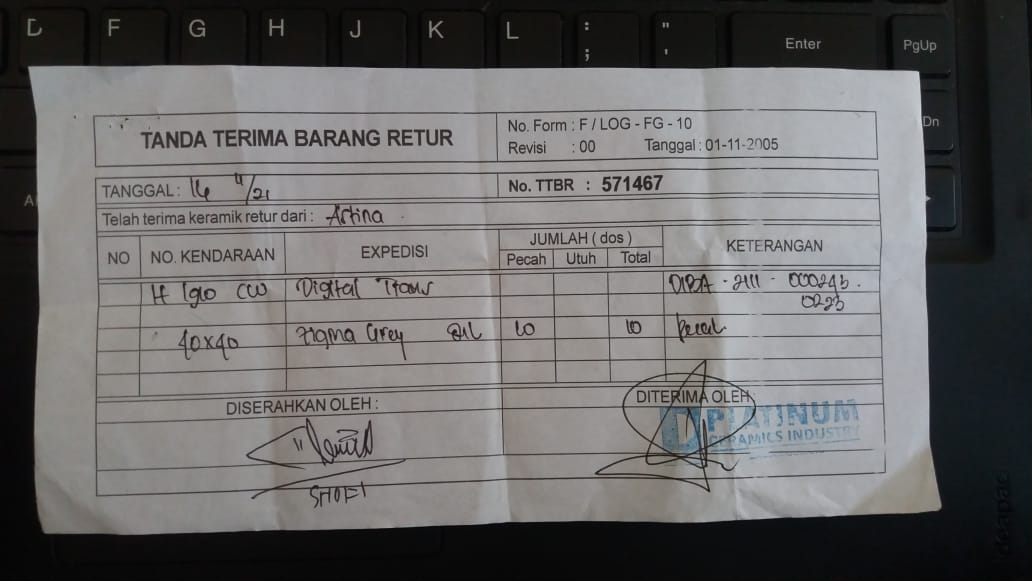 D F G H J K L : ; " ' Enter PgUp
Dn
TANDA TERIMA BARANG RETUR
No. Form : F / LOG - FG - 10
Revisi : 00 Tanggal : 01-11-2005
TANGGAL : 16 11/21
No. TTBR : 571467
Telah terima keramik retur dari : Artina
NO NO. KENDARAAN EXPEDISI JUMLAH ( dos ) KETERANGAN
Pecah Utuh Total
H 1910 CW Digital Trans
0223
40x40 Zigma Grey 10 10 Pecah
DISERAHKAN OLEH : DITERIMA OLEH
PLATINUM
CERAMICS INDUSTRY
SHOFI
ideapad